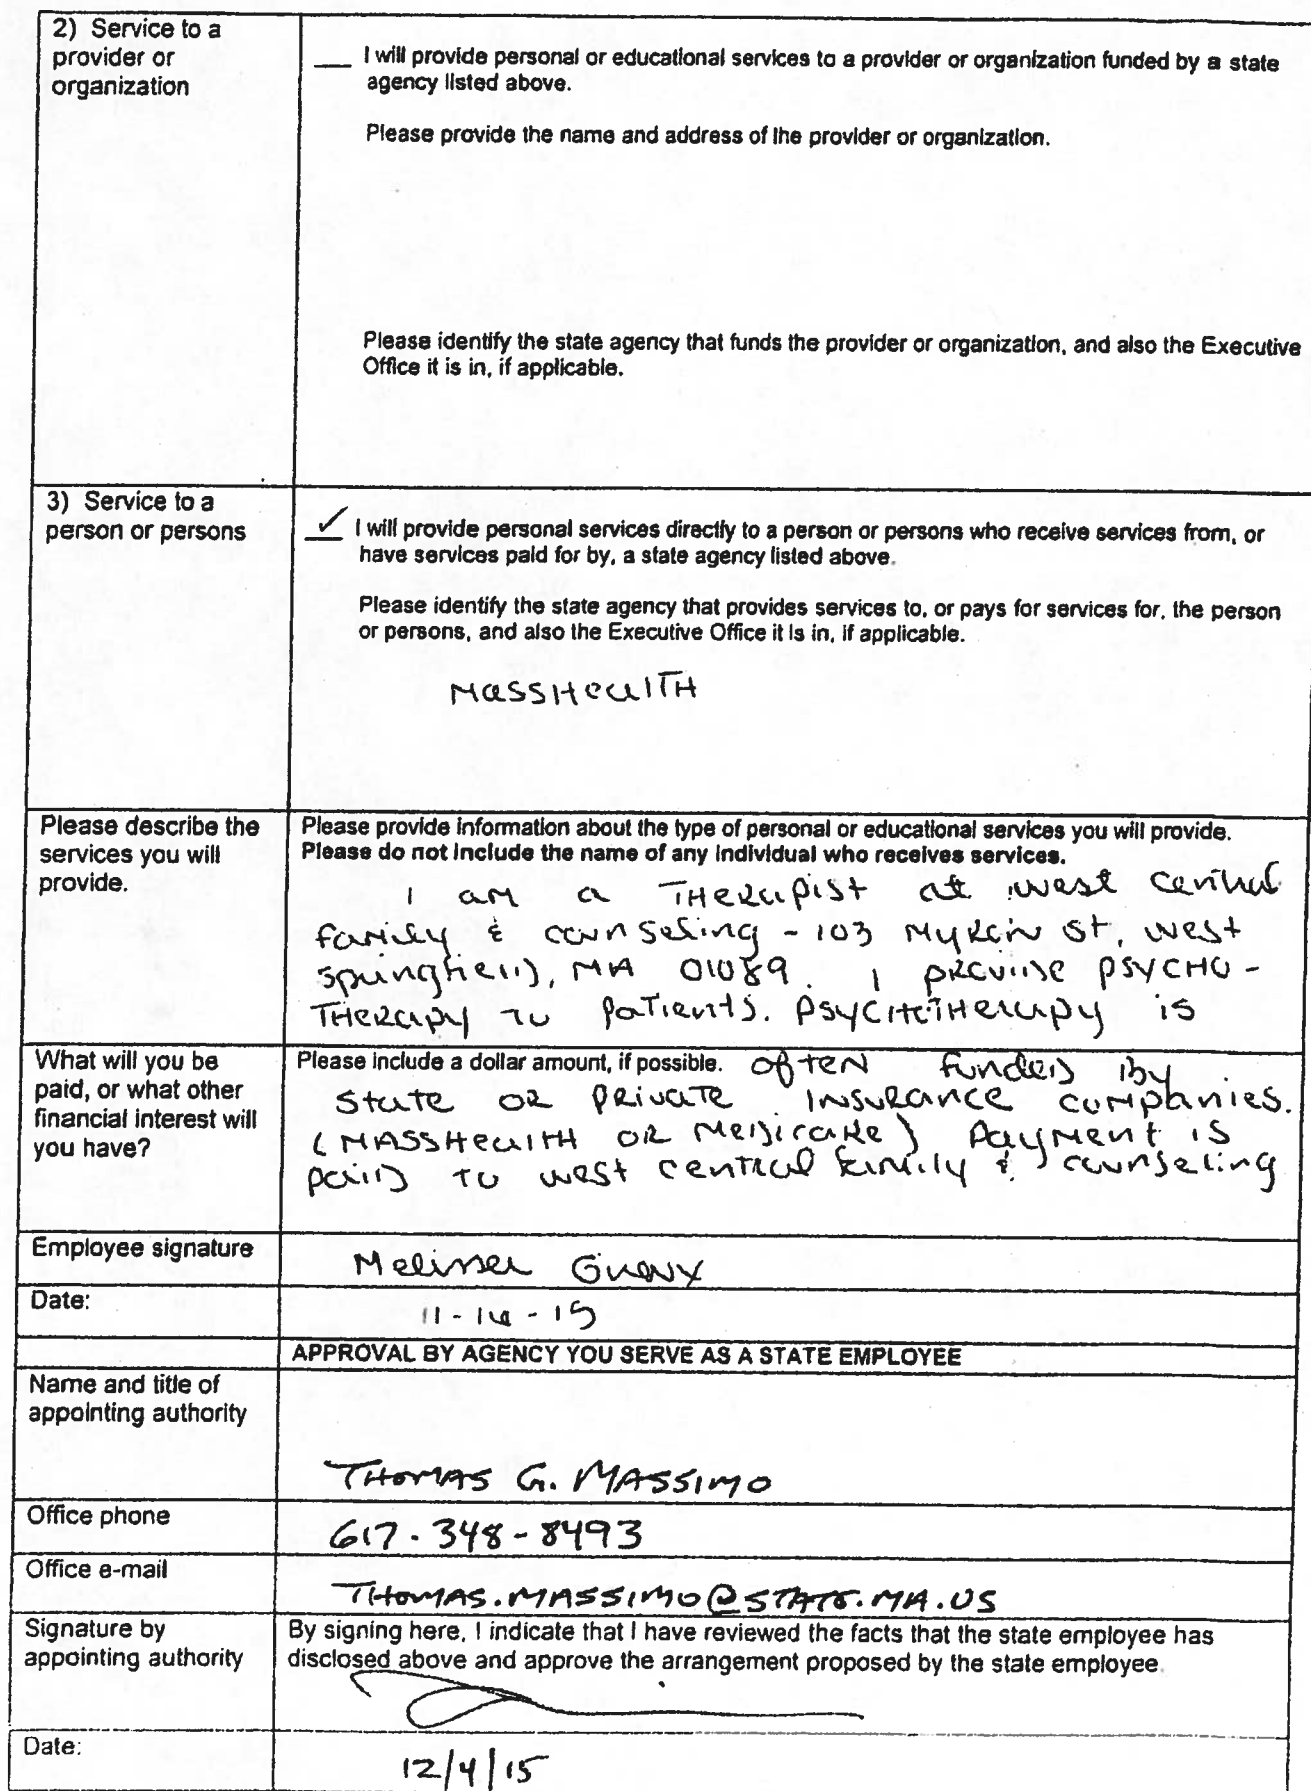 2) Service to a
provider or
organization
___ I will provide personal or educational services to a provider or organization funded by a state
agency listed above.
Please provide the name and address of the provider or organization.
Please identify the state agency that funds the provider or organization, and also the Executive
Office it is in, if applicable.
3) Service to a
person or persons
✓ I will provide personal services directly to a person or persons who receive services from, or
have services paid for by, a state agency listed above.
Please identify the state agency that provides services to, or pays for services for, the person
or persons, and also the Executive Office it is in, if applicable.
MassHealth
Please describe the
services you will
provide.
Please provide information about the type of personal or educational services you will provide.
Please do not include the name of any individual who receives services.
I am a Therapist at west central
family & counseling - 103 Myron St, west
springfield, MA 01089. I provide psycho-
Therapy to patients. Psychotherapy is
What will you be
paid, or what other
financial interest will
you have?
Please include a dollar amount, if possible. often funded by
state or private insurance companies.
(MassHealth or Medicare) Payment is
paid to west central family & counseling
Employee signature
Melissa
Date:
11-16-15
APPROVAL BY AGENCY YOU SERVE AS A STATE EMPLOYEE
Name and title of
appointing authority
THOMAS G. MASSIMO
Office phone
617-348-8493
Office e-mail
THOMAS.MASSIMO@STATE.MA.US
Signature by
appointing authority
By signing here, I indicate that I have reviewed the facts that the state employee has
disclosed above and approve the arrangement proposed by the state employee.
Date:
12/4/15